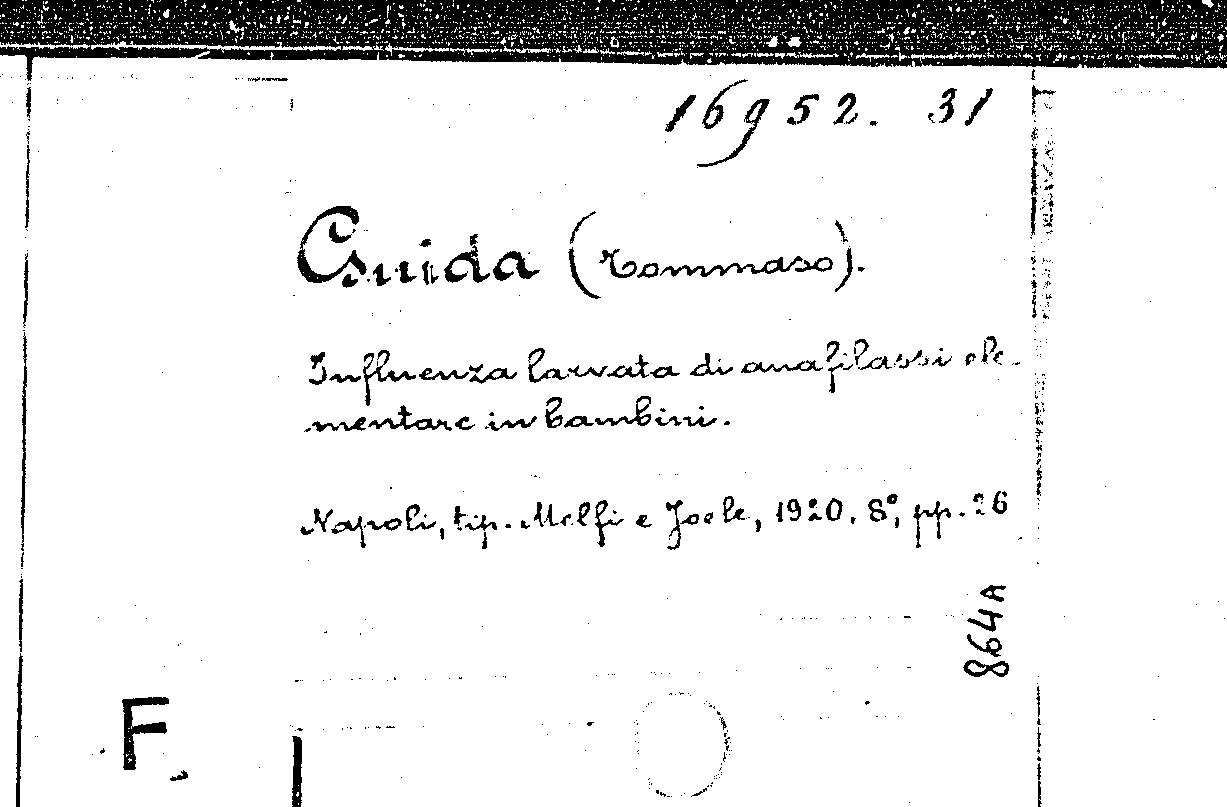 16952. 31
Guida (Tommaso).
Influenza larvata di anafilassi ele-
mentare in bambini.
Napoli, tip. Melfi e Joele, 1920. 8°, pp. 26
864A
F